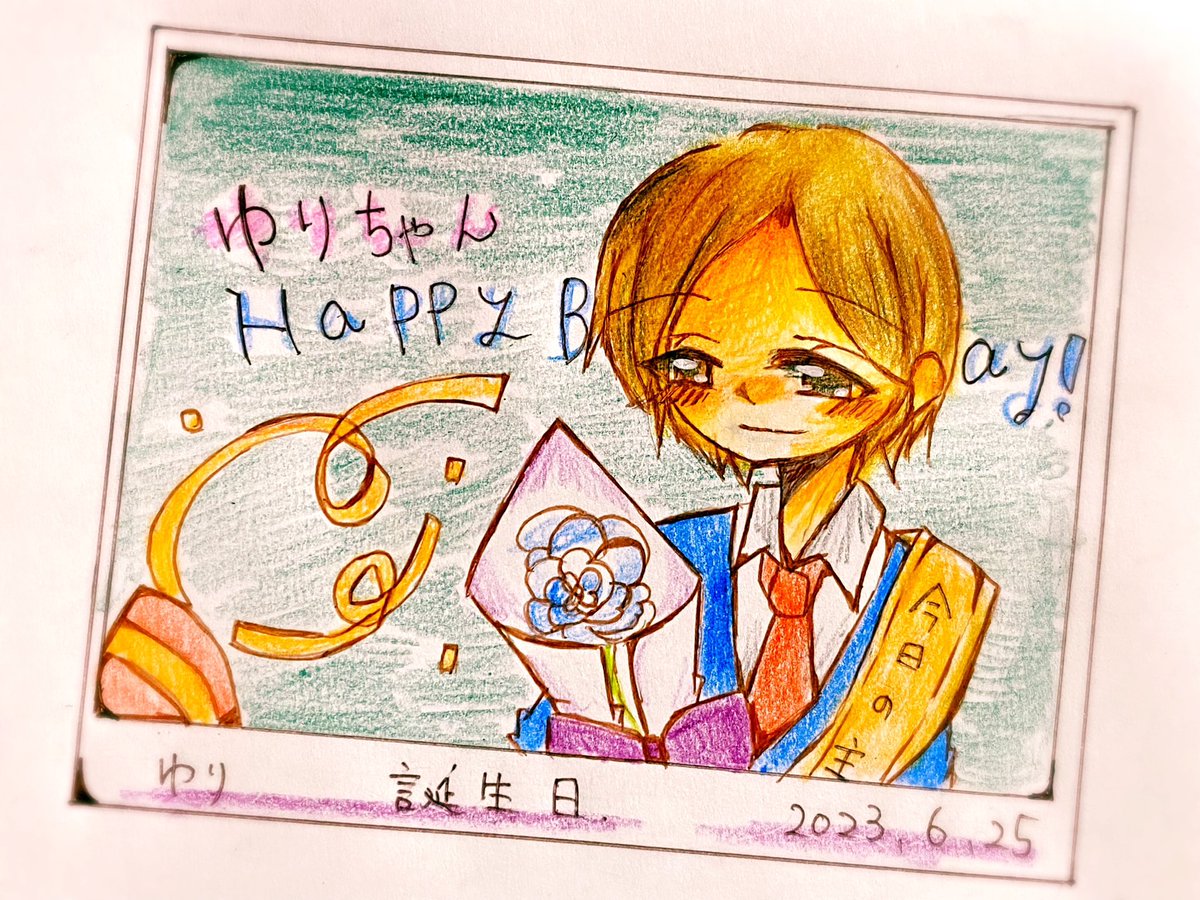 ゆりちゃん
HAPPY B ay!
今日の主
ゆり 誕生日. 2023.6.25